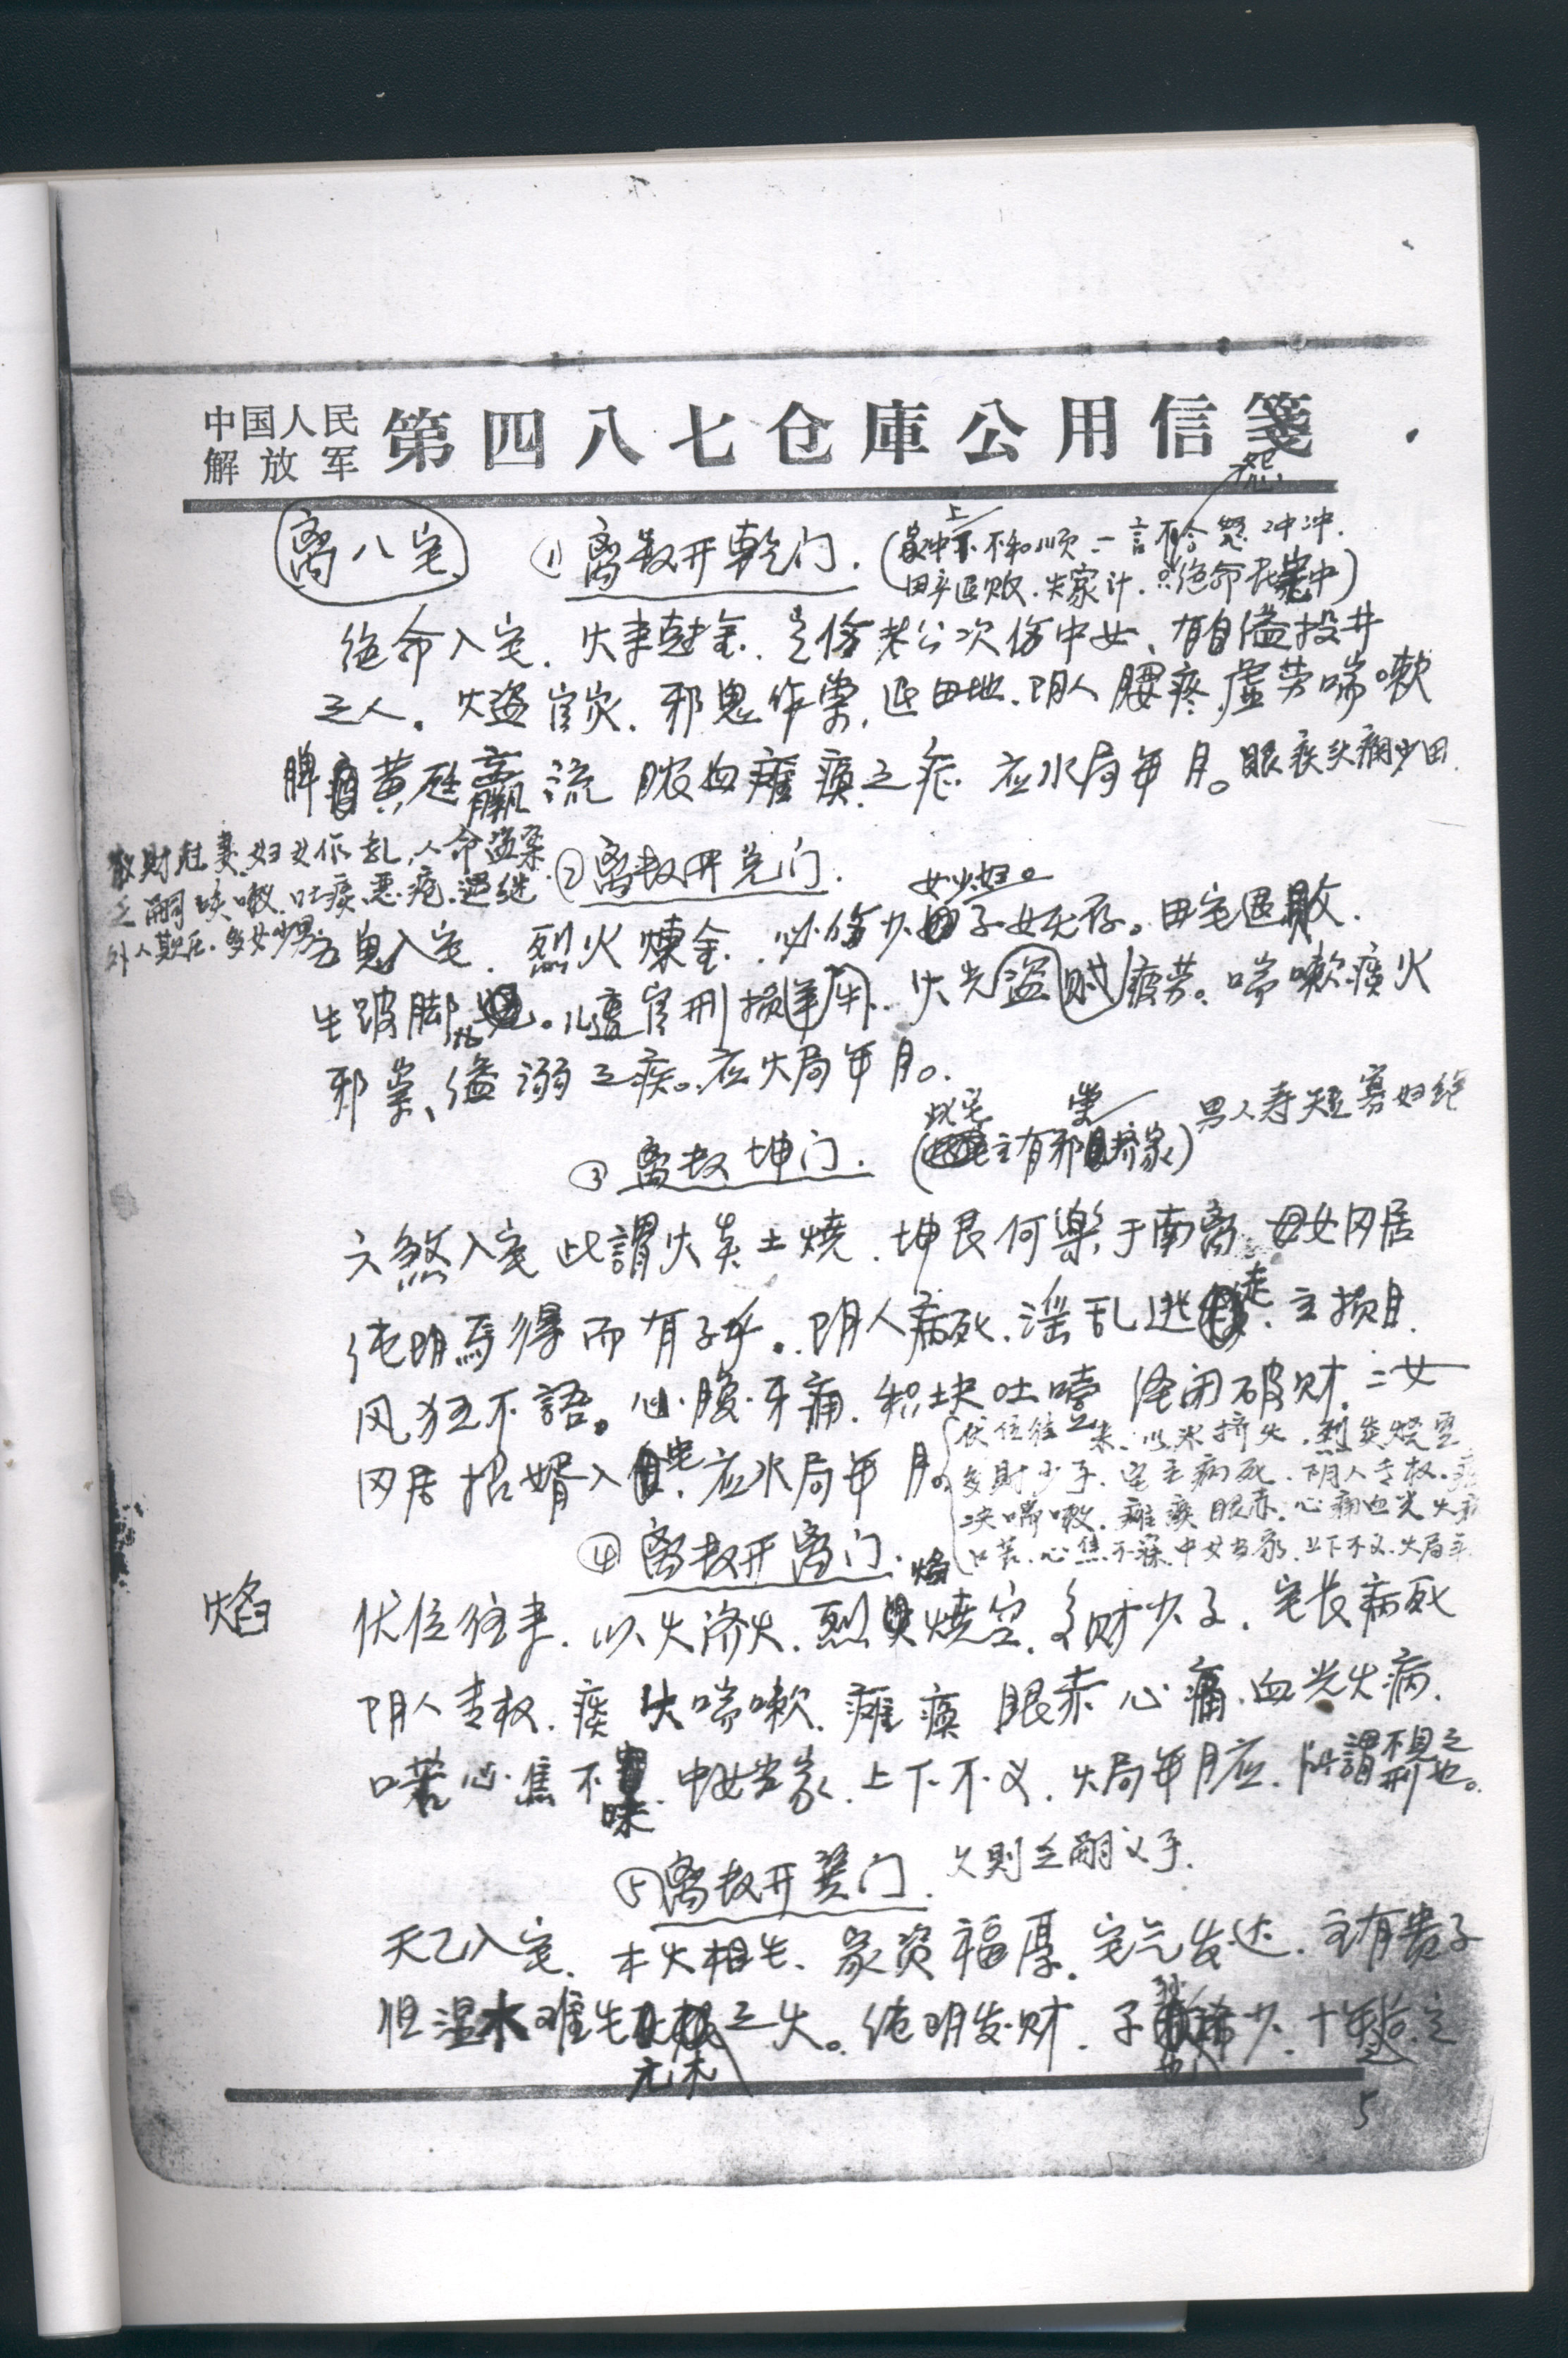 中国人民
解放军 第四八七仓庫公用信箋
怨
离八宅 ① 离放开乾门. (家中不和顺 一言不合怒冲冲.
上
田产退败.失家计.只绝命于家中)
绝命入宅. 火来尅金. 先伤老公次伤中女、有自缢投井
之人. 火盗官灾. 邪鬼作祟, 退田地. 阴人腰疼.虚劳喘嗽
脾 黄 流 脓血瘫痪之症 应水局年月。眼疾头痛少田.
散财尅妻.妇女作乱,人命盗
② 离放开兑门.
乏嗣咳嗽.吐痰恶疮.过继
女少妇。
外人欺 多女少男
五鬼入宅. 烈火煉金. 必伤少 子女无存。田宅退败.
生跛脚 。 遭官刑损 . 火光盗贼 痨。喘嗽痰火
邪祟、缢溺之疾。应火局年月。
此宅 祟
③ 离放坤门. ( 主有邪 家) 男人寿短寡妇绝
六煞入宅 此謂火炎土燒. 坤艮何樂于南离 母女同居
纯阴焉得而有子乎。阴人病死.淫乱逃走.主损目.
风狂不語。心腹牙痛.积块吐 经闭破财.二女
同居招婿入 .应水局年月。
伏位往来.以火济火.烈炎烧空
多財少子.宅主病死.阴人专权.痰
火喘嗽.瘫痪眼赤.心痛血光火病
口苦.心焦不 .中女当家.上下不义.火局年
④ 离放开离门. 焰
焰 伏位往来. 以火济火. 烈 燒空. 多财少子. 宅长病死
阴人专权. 痰火喘嗽. 瘫痪 眼赤心痛.血光火病.
口苦心焦不 味. 中女当家. 上下不义. 火局年月应. 所謂不見之刑也。
⑤ 离放开巽门. 久則乏嗣义子.
天乙入宅. 木火相生. 家资福厚. 宅气发达. 主有贵子
但湿木难生 之火。纯阴发财. 子 少. 十年
元木
5